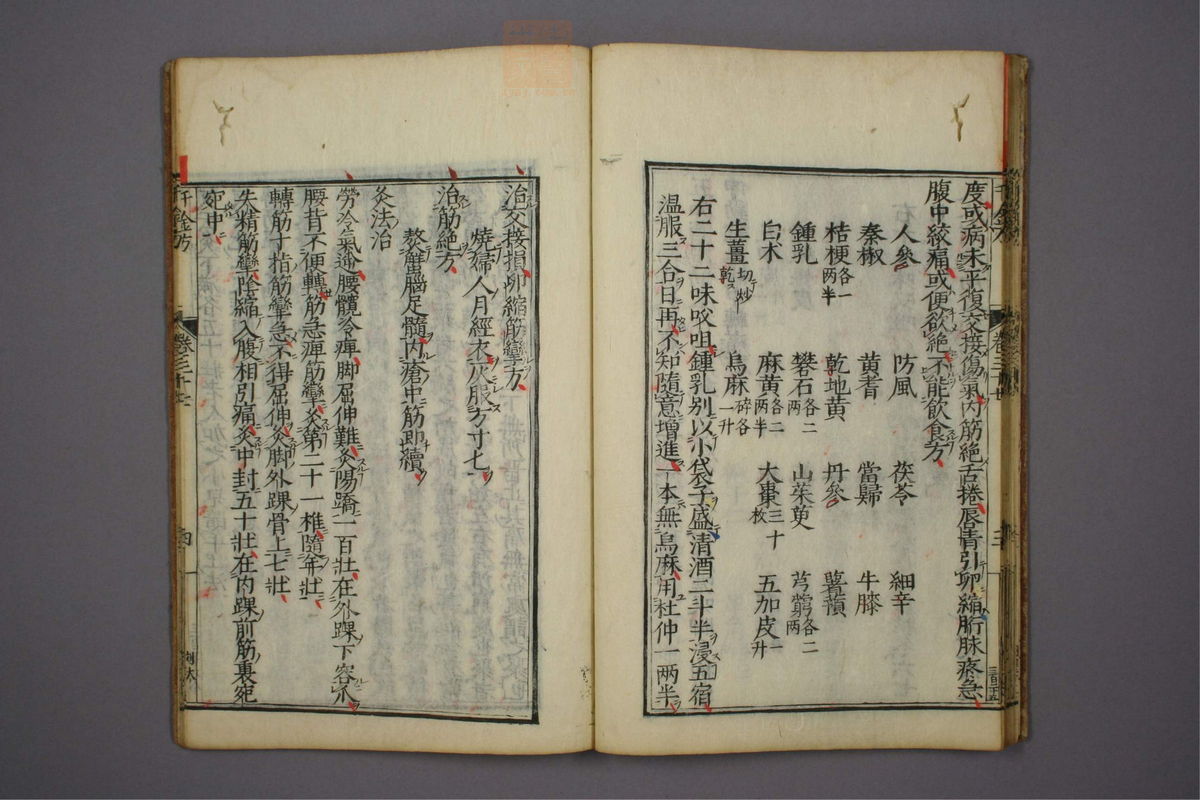 度或病未平復交接傷氣内筋絶舌捲唇青引卵縮䯒脉疼急
腹中絞痛或便欲絶不能飲食方
人參 防風 茯苓 細辛
秦椒 黄耆 當歸 牛膝
桔梗各一两半 乾地黄 丹參 薯蕷
鍾乳 礬石各二两 山茱萸 芎藭各二两
白术 麻黄各二两半 大棗三十枚 五加皮一升
生薑切炒乾 烏麻碎各一升
右二十二味㕮咀鍾乳别以小袋子盛清酒二斗半浸五宿
温服三合日再不知隨意增進一本無烏麻用杜仲一两半
治交接損卵縮筋攣方
燒婦人月經衣灰服方寸匕
治筋絶方
熬蟹腦足髓内瘡中筋即續
灸法治
勞冷氣逆腰髖冷痺脚屈伸難灸陽蹻一百壯在外踝下容爪
腰背不便轉筋急痺筋攣灸第二十一椎隨年壯
轉筋十指筋攣急不得屈伸灸脚外踝骨上七壯
失精筋攣陰縮入腹相引痛灸中封五十壯在内踝前筋裏宛
宛中
千金方 卷三十 四